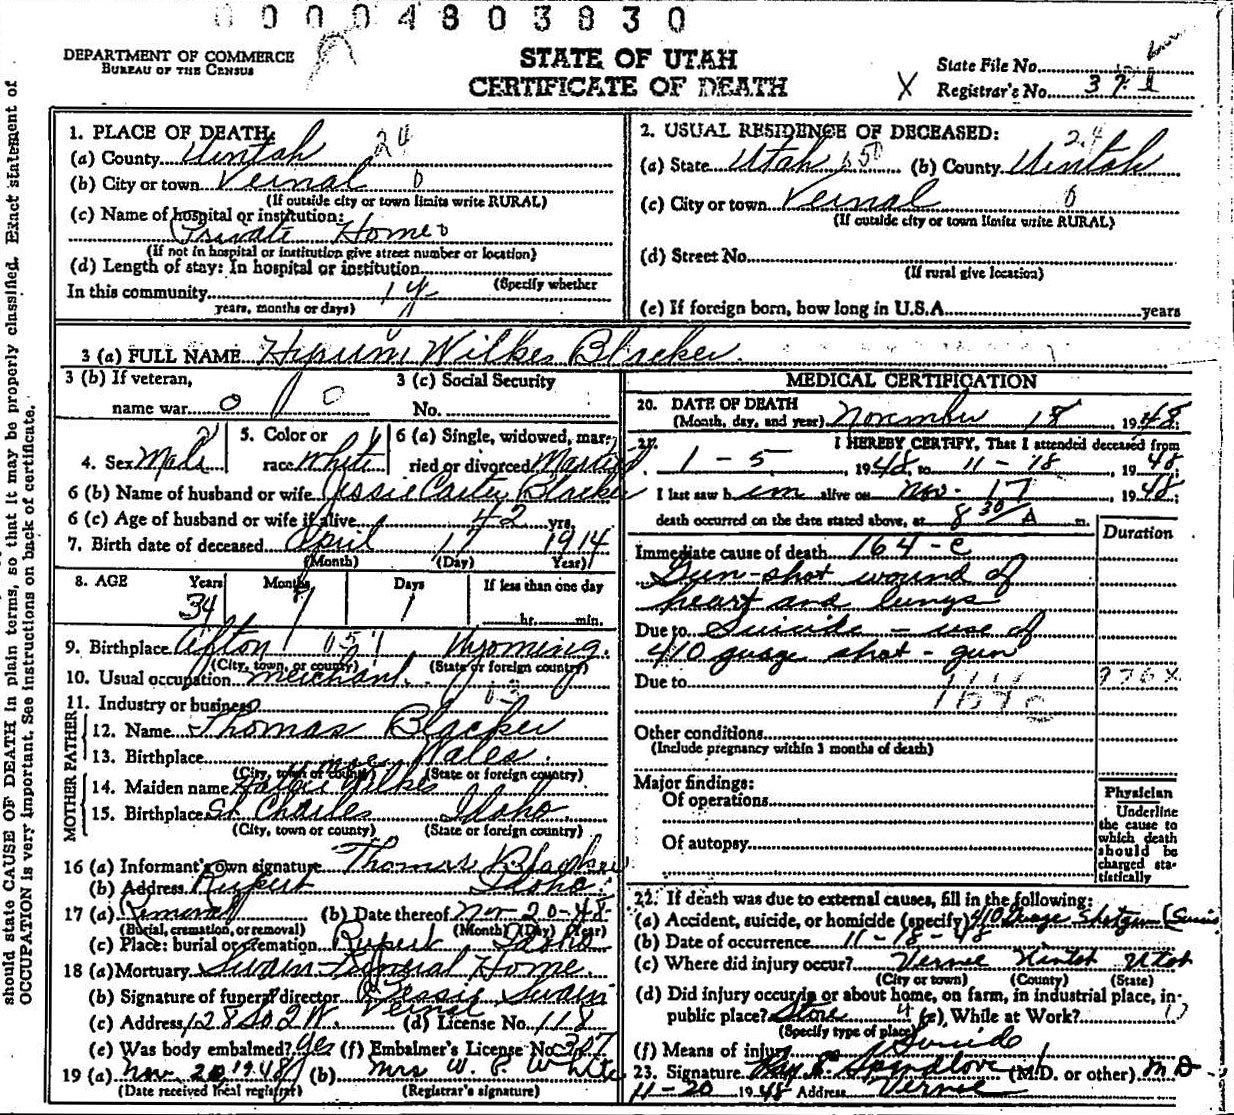 0 0 0 0 4 8 0 3 8 3 0
DEPARTMENT OF COMMERCE
BUREAU OF THE CENSUS
STATE OF UTAH
CERTIFICATE OF DEATH
State File No.
X Registrar's No. 37
should state CAUSE OF DEATH in plain terms, so that it may be properly classified. Exact statement of
OCCUPATION is very important. See instructions on back of certificate.
1. PLACE OF DEATH:
(a) County Uintah 24
(b) City or town Vernal 0
(If outside city or town limits write RURAL)
(c) Name of hospital or institution:
Private Home 0
(If not in hospital or institution give street number or location)
(d) Length of stay: In hospital or institution
(Specify whether
In this community 1 y
years, months or days)
2. USUAL RESIDENCE OF DECEASED:
24
(a) State Utah 650 (b) County Uintah
(c) City or town Vernal 0
(If outside city or town limits write RURAL)
(d) Street No.
(If rural give location)
(e) If foreign born, how long in U.S.A. years
3 (a) FULL NAME Hyrum Wilkes Blacker
3 (b) If veteran,
name war 0 0
3 (c) Social Security
No.
4. Sex Male
5. Color or
race White
6 (a) Single, widowed, mar-
ried or divorced Married
6 (b) Name of husband or wife Jessie Carter Blacker
6 (c) Age of husband or wife if alive 42 yrs.
7. Birth date of deceased April 17 1914
(Month) (Day) Year)
8. AGE Years Months Days If less than one day
34 7 1 hr. min.
9. Birthplace Afton 051 Wyoming
(City, town, or county) (State or foreign country)
10. Usual occupation Merchant
11. Industry or business
FATHER
12. Name Thomas Blacker
13. Birthplace Wales
(City, town or county) (State or foreign country)
MOTHER
14. Maiden name Hattie Wilkes
15. Birthplace St. Charles Idaho
(City, town or county) (State or foreign country)
16 (a) Informant's own signature Thomas Blacker
(b) Address Rupert Idaho
17 (a) Removal (b) Date thereof Nov-20-48
(Burial, cremation, or removal) (Month) (Day) (Year)
(c) Place: burial or cremation Rupert, Idaho
18 (a) Mortuary Swain Funeral Home
(b) Signature of funeral director Bessie Swain
Vernal
(c) Address 128 So 2 W. (d) License No. 118
(e) Was body embalmed? yes (f) Embalmer's License No. 307
19 (a) Nov. 20, 1948 (b) Mrs W. P. White
(Date received local registrar) (Registrar's signature)
MEDICAL CERTIFICATION
20. DATE OF DEATH
(Month, day, and year) November 18, 1948;
21. I HEREBY CERTIFY, That I attended deceased from
1 - 5, 1948, to 11 - 18, 1948;
I last saw h im alive on Nov. 17, 1948;
death occurred on the date stated above, at 8 30/A m.
Duration
Immediate cause of death 164-c
Gun-shot wound of
heart and lungs
Due to Suicide - use of
410 guage shot-gun
Due to 976X
164c
Other conditions
(Include pregnancy within 3 months of death)
Major findings:
Of operations
Of autopsy
Physician
Underline
the cause to
which death
should be
charged sta-
tistically
22. If death was due to external causes, fill in the following:
(a) Accident, suicide, or homicide (specify) 410 Guage Shotgun (Suici
(b) Date of occurrence 11-18-48
(c) Where did injury occur? Vernal Uintah Utah
(City or town) (County) (State)
(d) Did injury occur in or about home, on farm, in industrial place, in
public place? Store 4 (e) While at Work?
(Specify type of place)
(f) Means of injury Suicide
23. Signature Ray E. Spendlove (M.D. or other) M D
11-20 1948 Address Vernal